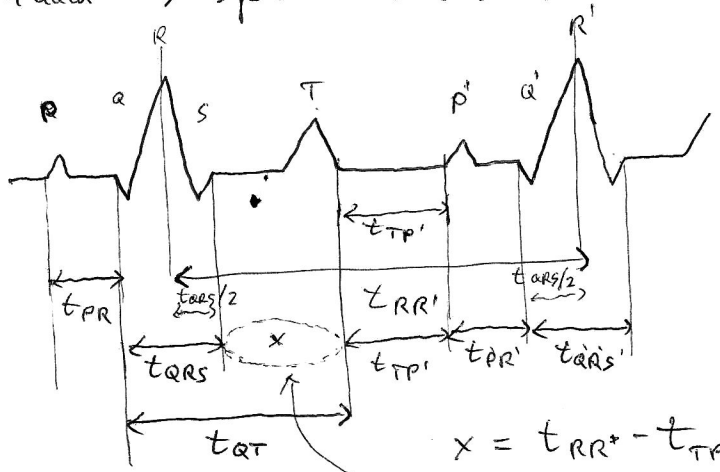 R R'
P Q S T P' Q'
t TP'
t QRS/2 t RR' t QRS/2
t PR
x
t QRS t TP' t PR' t QRS'
t QT
x = t RR' - t TP